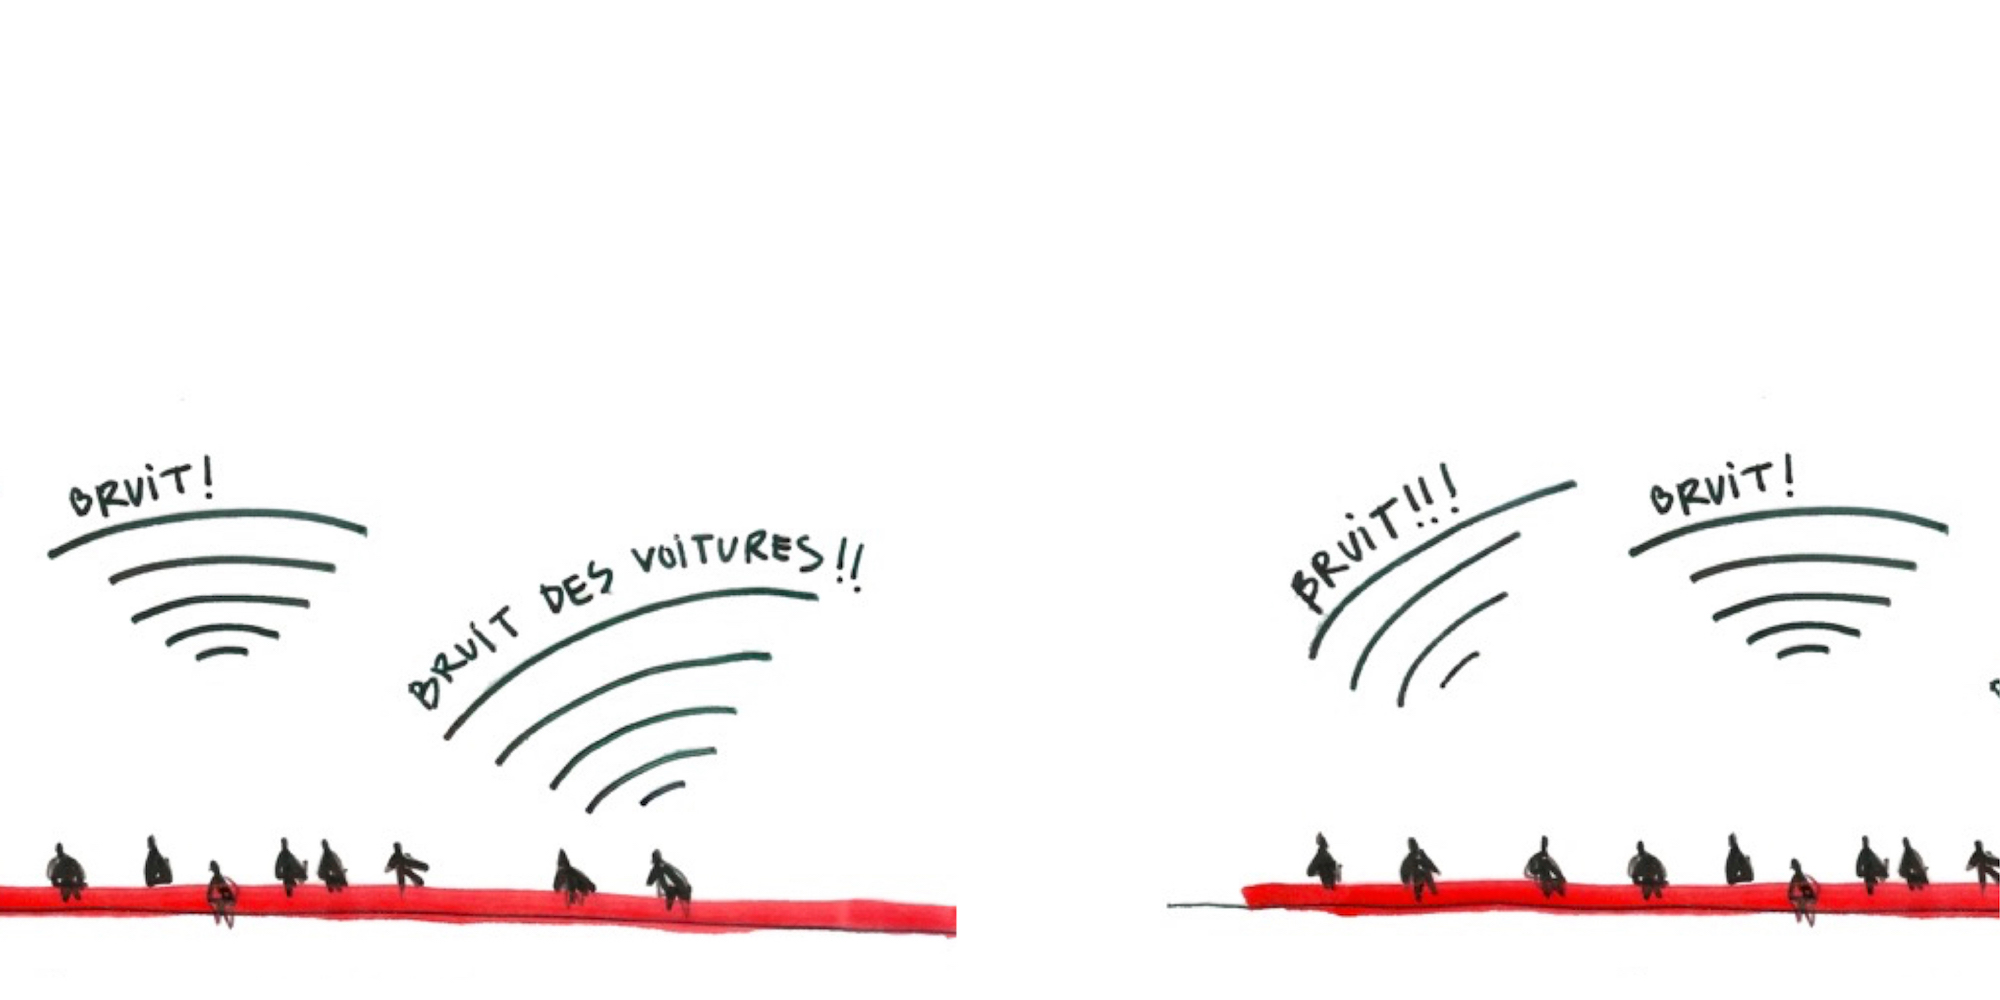 BRUiT!
BRUiT DES VOiTURES!!
BRUiT!!!
BRUiT!